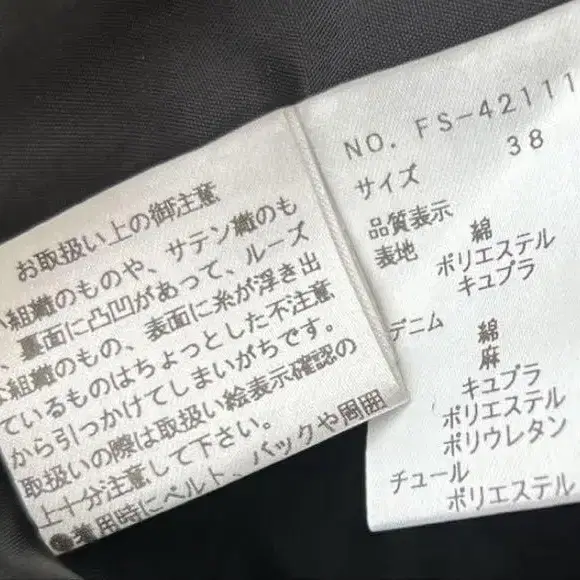 お取扱い上の御注意
い組織のものや、サテン織のも
、裏面に凸凹があって、ルーズ
な組織のもの、表面に糸が浮き出
ているものはちょっとした不注意
から引っかけてしまいがちです。
取扱いの際は取扱い絵表示確認の
上十分注意して下さい。
●着用時にベルト、バックや周囲
NO. FS-42111
サイズ 38
品質表示
表地 綿
ポリエステル
キュプラ
デニム 綿
麻
キュプラ
ポリエステル
ポリウレタン
チュール
ポリエステル